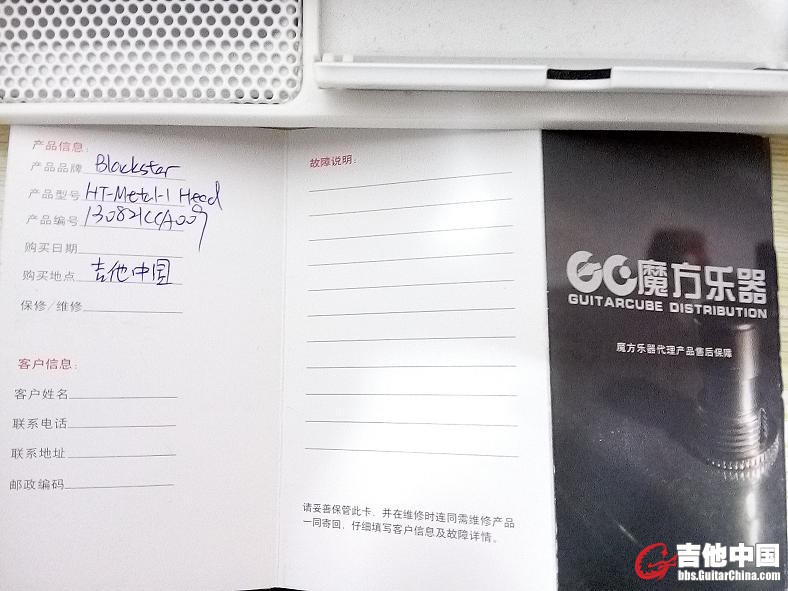 产品信息:
产品品牌 Blackstar
产品型号 HT-Metal-1 Head
产品编号 130821CCA009
购买日期
购买地点 吉他中国
保修/维修
客户信息:
客户姓名
联系电话
联系地址
邮政编码
故障说明:
请妥善保管此卡、并在维修时连同需维修产品
一同寄回、仔细填写客户信息及故障详情。
GC魔方乐器
GUITARCUBE DISTRIBUTION
魔方乐器代理产品售后保障
吉他中国
bbs.GuitarChina.com